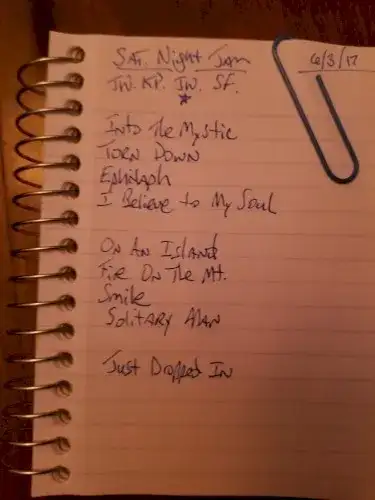 SAT. Night Jam 6/3/17
JW. KP. JW. SF.
Into The Mystic
TORN DOWN
I Believe to My Soul
ON AN ISLAND
Fire On The Mt.
Smile
Solitary Man
Just Dropped In